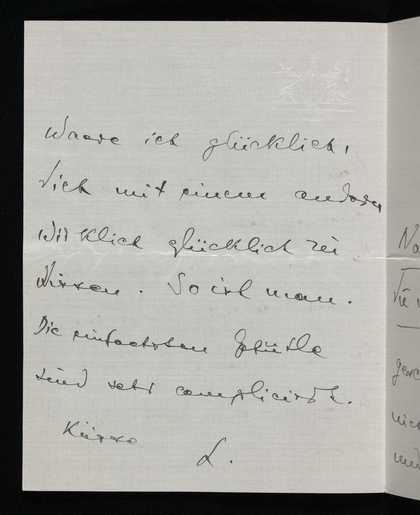 waere ich glücklich,
Dich mit einem andern
wirklich glücklich zu
wissen. So ist man.
Die einfachsten Gefühle
sind sehr compliciert.
Küsse
L.